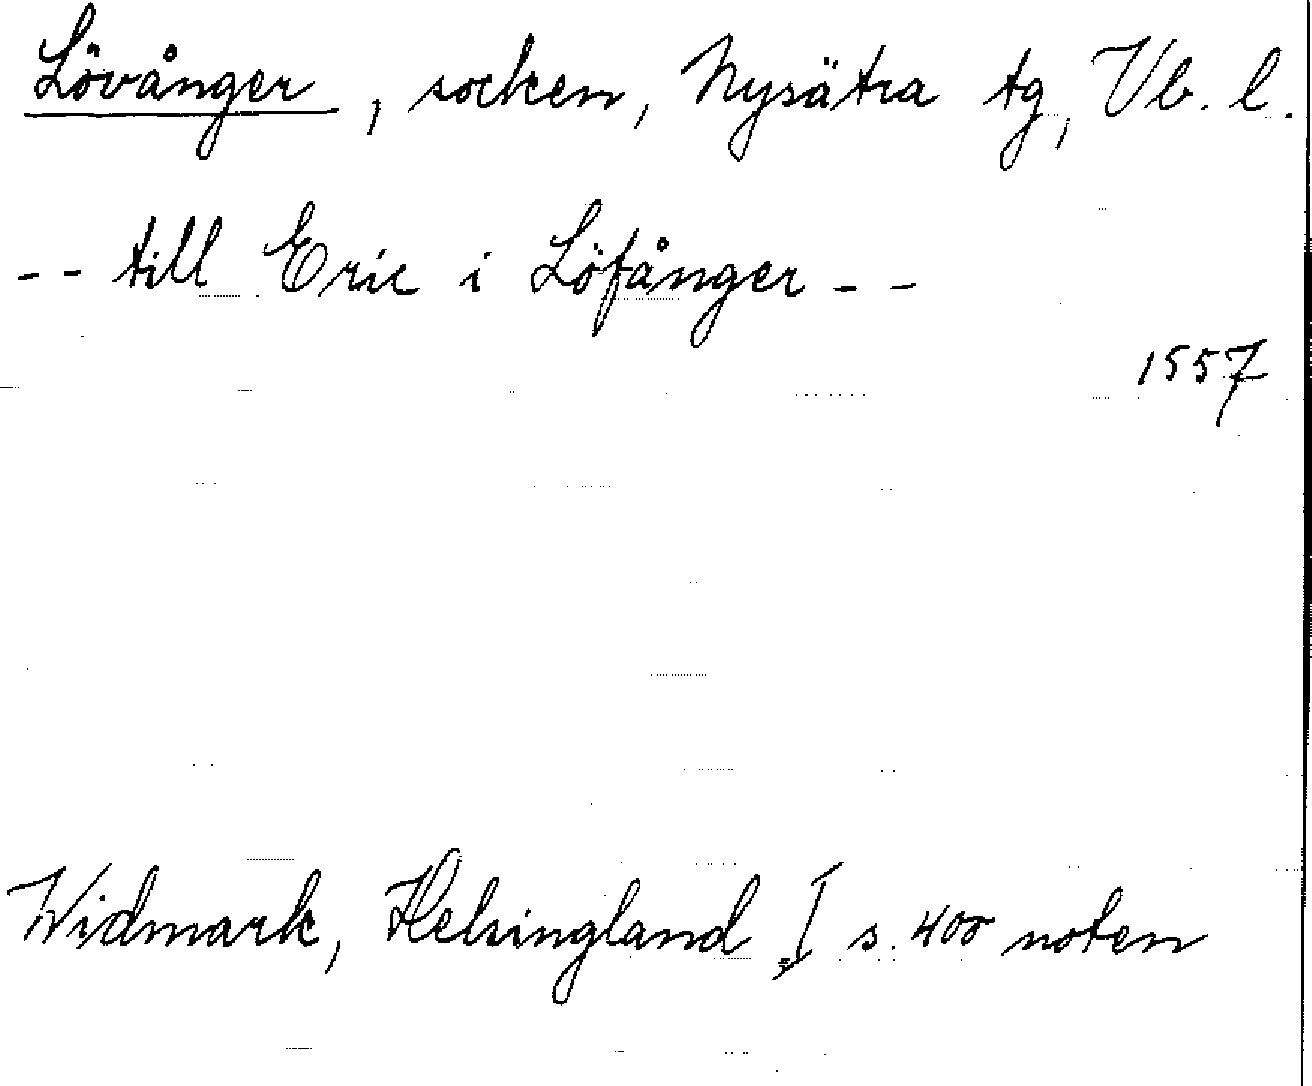 Lövånger, socken, Nysätra tg, Vb. l.
-- till Eric i Löfånger --
1557
Widmark, Helsingland I s. 400 noten